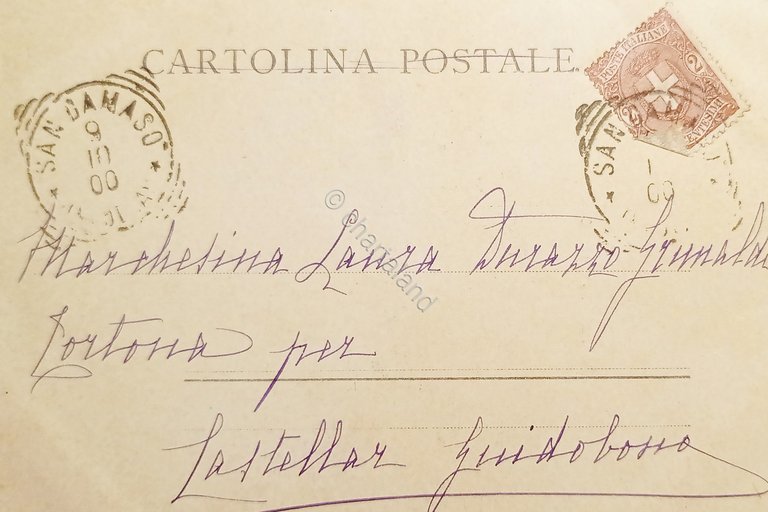 CARTOLINA POSTALE
POSTE ITALIANE
2
SAN DAMASO
9
10
00
SAN DAM
00
© chartaland
Marchesina Laura Durazzo Grimaldi
Tortona per
Castellar Guidobono